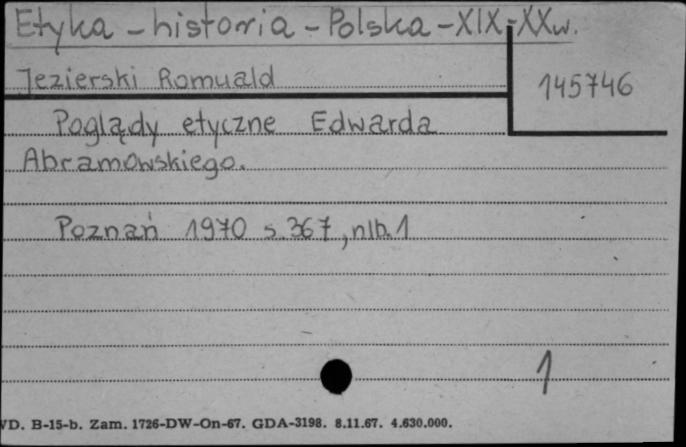 Etyka - historia - Polska - XIX-XX w.
Jezierski Romuald
145746
Poglądy etyczne Edwarda
Abramowskiego.
Poznań 1970 s. 367, nlb. 1
1
VD. B-15-b. Zam. 1726-DW-On-67. GDA-3198. 8.11.67. 4.630.000.